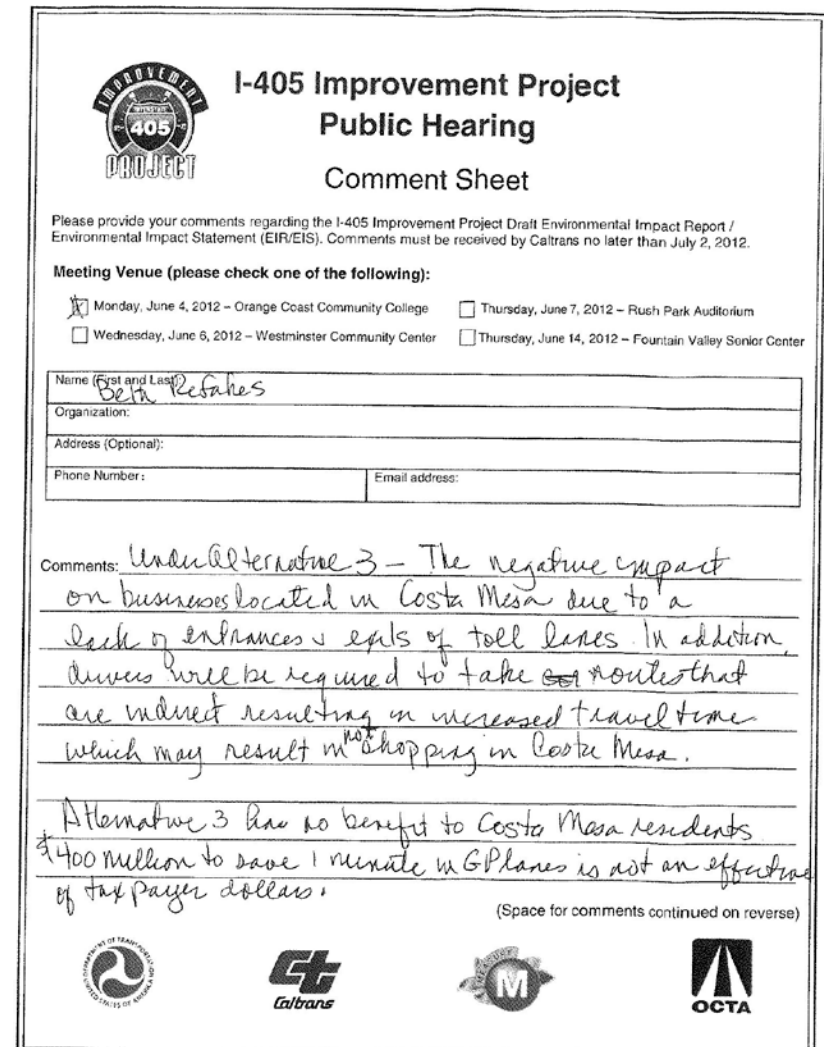 IMPROVEMENT
INTERSTATE
405
PROJECT
I-405 Improvement Project
Public Hearing
Comment Sheet
Please provide your comments regarding the I-405 Improvement Project Draft Environmental Impact Report /
Environmental Impact Statement (EIR/EIS). Comments must be received by Caltrans no later than July 2, 2012.
Meeting Venue (please check one of the following):
Monday, June 4, 2012 – Orange Coast Community College
Thursday, June 7, 2012 – Rush Park Auditorium
Wednesday, June 6, 2012 – Westminster Community Center
Thursday, June 14, 2012 – Fountain Valley Senior Center
Name (First and Last):
Beth Refakes
Organization:
Address (Optional):
Phone Number:
Email address:
Comments: Under Alternative 3 – The negative impact
on businesses located in Costa Mesa due to a
lack of entrances & exits of toll lanes. In addition,
drivers will be required to take routes that
are indirect resulting in increased travel time
which may result in not shopping in Costa Mesa.
Alternative 3 has no benefit to Costa Mesa residents
$400 million to save 1 minute in GP lanes is not an effective
of tax payer dollars.
(Space for comments continued on reverse)
DEPARTMENT OF TRANSPORTATION
UNITED STATES OF AMERICA
Ct
Caltrans
MEASURE
M
OCTA